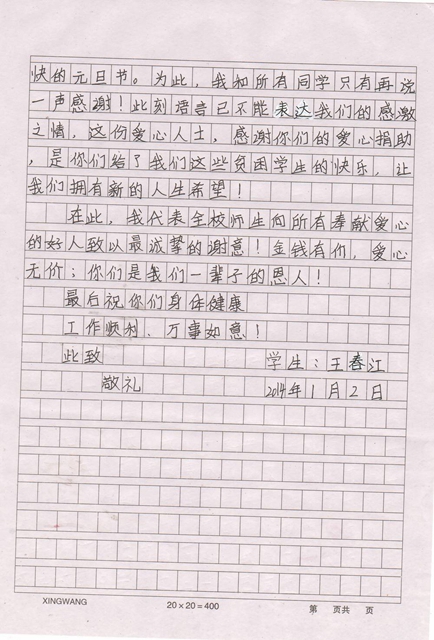 快的元旦节。为此，我和所有同学只有再说
一声感谢！此刻语言已不能表达我们的感激
之情，这份爱心人士，感谢你们的爱心捐助
，是你们给了我们这些贫困学生的快乐，让
我们拥有新的人生希望！
在此，我代表全校师生向所有奉献爱心
的好人致以最诚挚的谢意！金钱有价，爱心
无价；你们是我们一辈子的恩人！
最后祝你们身体健康
工作顺利、万事如意！
此致 学生：王春江
敬礼 2014年1月2日
XINGWANG 20×20=400 第 页共 页